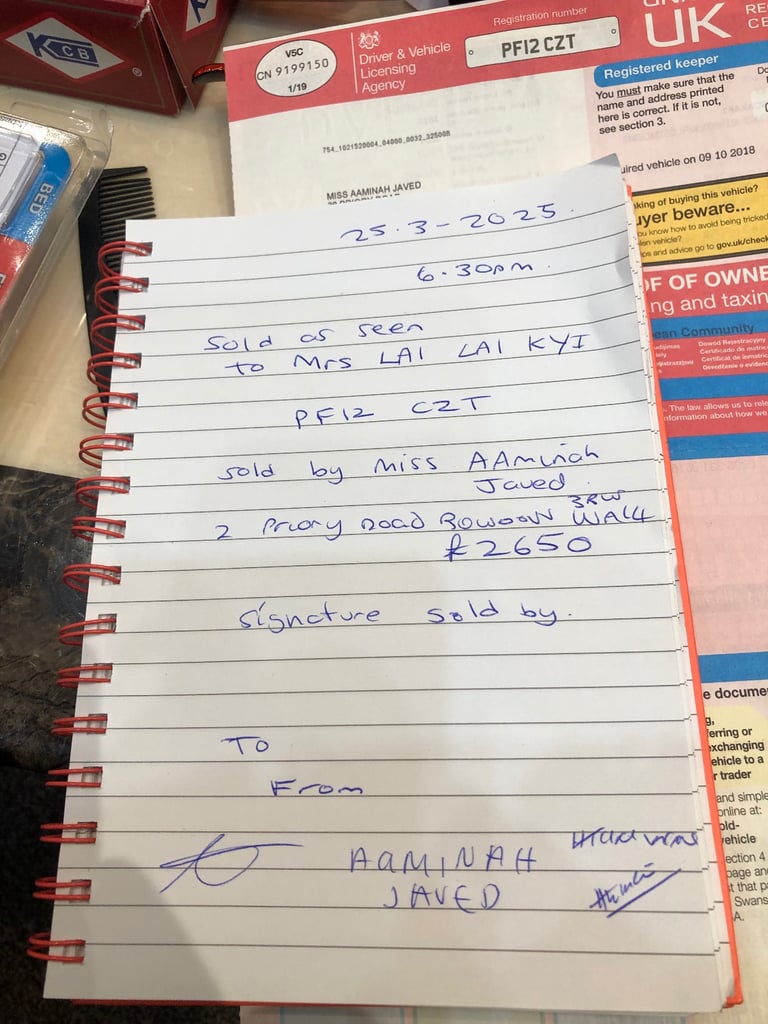 KCB
BED
V5C
CN 9199150
1/19
Driver & Vehicle
Licensing
Agency
Registration number
PF12 CZT
UK
Registered keeper
You must make sure that the
name and address printed
here is correct. If it is not,
see section 3.
754_1021520004_04000_0032_325008
MISS AAMINAH JAVED
uired vehicle on 09 10 2018
king of buying this vehicle?
uyer beware...
u know how to avoid being tricked
len vehicle?
ps and advice go to gov.uk/check
OF OF OWNE
ng and taxin
ean Community
Dowod Rejestracyjny
. The law allows us to rele
nformation about how we
e docume
g,
ferring or
exchanging
ehicle to a
r trader
and simple
online at:
old-
vehicle
ection 4
page and
t that p
Swans
A.
25.3-2025.
6.30pm.
Sold as seen
to Mrs LAI LAI KYI
PF12 CZT
sold by Miss AAminah
Javed.
2 Priory Road
£2650
signature sold by.
To
From
AAMINAH
JAVED